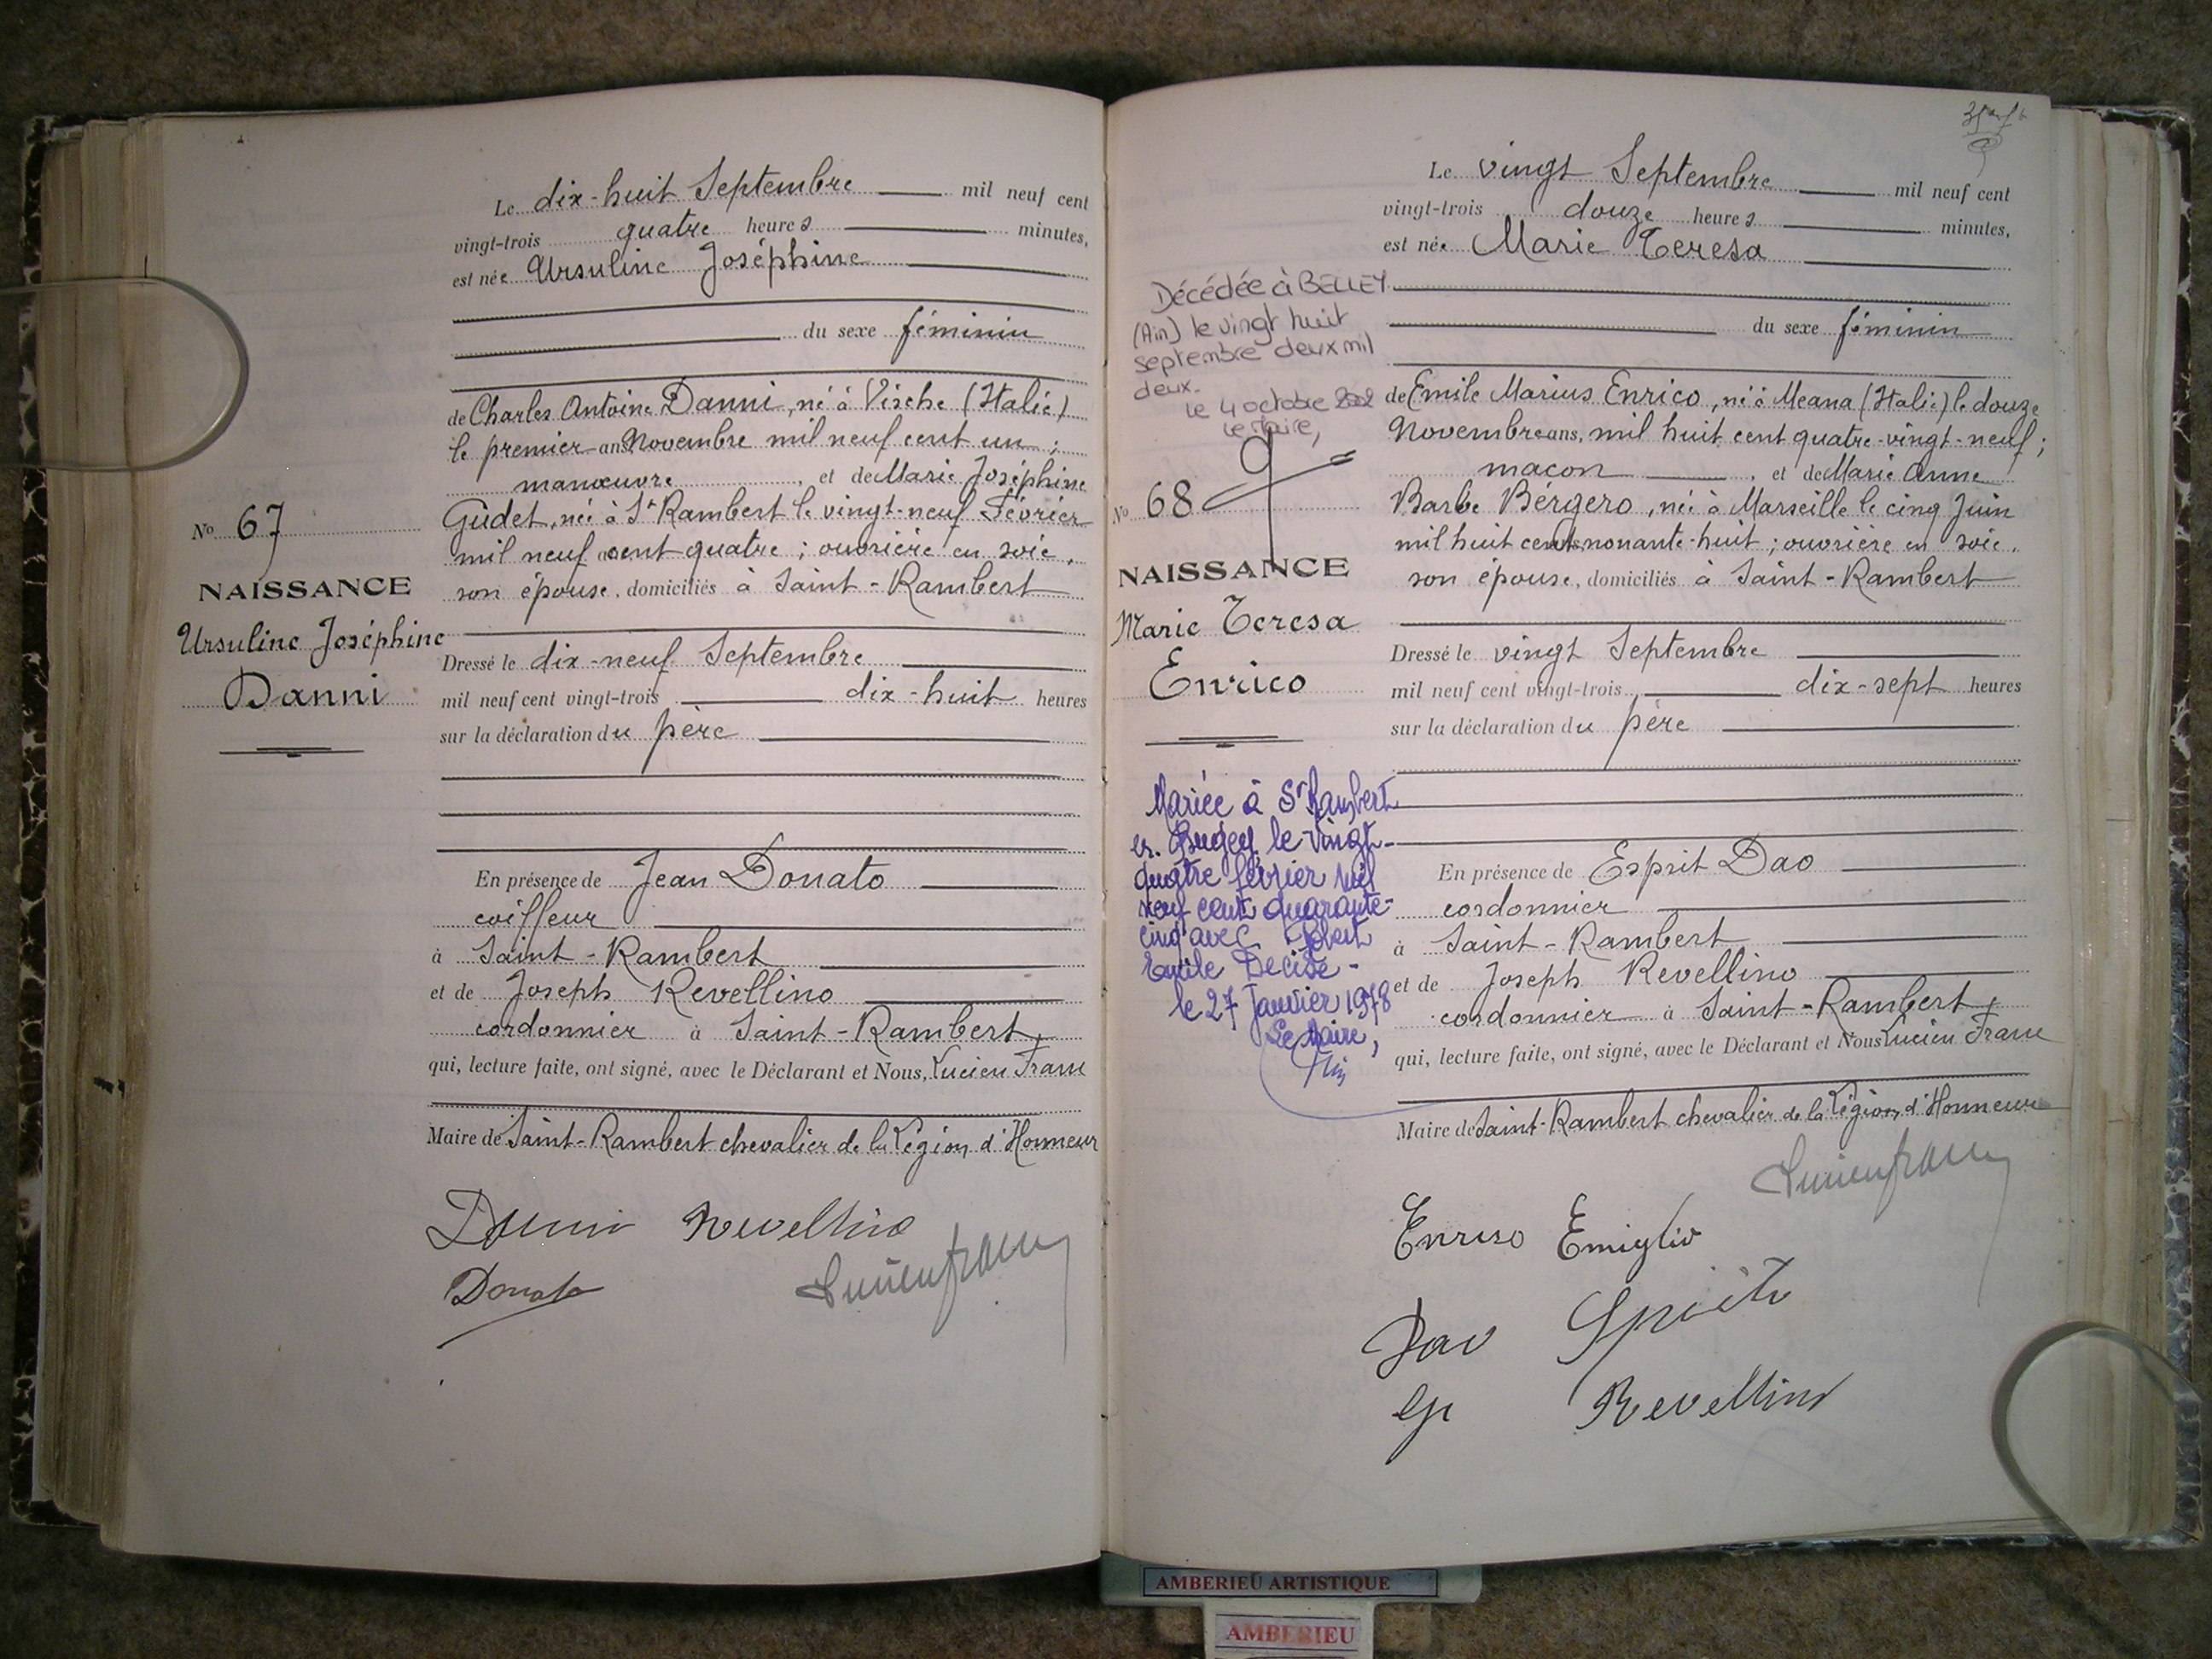 Le dix-huit Septembre mil neuf cent
vingt-trois quatre heures minutes,
est née Ursuline Joséphine
du sexe féminin
de Charles Antoine Danni, né à Vische (Italie)
le premier ans Novembre mil neuf cent un ;
manœuvre, et de Marie Joséphine
Gudet, née à St Rambert le vingt-neuf Février
mil neuf cent quatre ; ouvrière en soie,
son épouse, domiciliés à Saint-Rambert
No 67
NAISSANCE
Ursuline Joséphine
Danni
Dressé le dix-neuf Septembre
mil neuf cent vingt-trois dix-huit heures
sur la déclaration du père
En présence de Jean Donato
coiffeur
à Saint-Rambert
et de Joseph Revellino
cordonnier à Saint-Rambert,
qui, lecture faite, ont signé, avec le Déclarant et Nous, Lucien Franc
Maire de Saint-Rambert chevalier de la Légion d'Honneur
Danni Revellino
Donato
Lucien franc
Le vingt Septembre mil neuf cent
vingt-trois douze heures minutes,
est née Marie Teresa
du sexe féminin
de Emile Marius Enrico, né à Meana (Italie) le douze
Novembre ans, mil huit cent quatre-vingt-neuf ;
maçon, et de Marie Anne
Barbe Bérgero, née à Marseille le cinq Juin
mil huit cent nonante-huit ; ouvrière en soie,
son épouse, domiciliés à Saint-Rambert
Décédée à BELLEY
(Ain) le vingt huit
septembre deux mil
deux.
le 4 octobre 2002
Le Maire,
No 68
NAISSANCE
Marie Teresa
Enrico
Dressé le vingt Septembre
mil neuf cent vingt-trois, dix-sept heures
sur la déclaration du père
Mariée à St Rambert
en Bugey le vingt-
quatre février mil
neuf cent quarante-
cinq avec Robert
Emile Decise -
le 27 Janvier 1978
Le Maire,
En présence de Esprit Dao
cordonnier
à Saint-Rambert
et de Joseph Revellino
cordonnier à Saint-Rambert,
qui, lecture faite, ont signé, avec le Déclarant et Nous Lucien Franc
Maire de Saint-Rambert chevalier de la Légion d'Honneur
Lucien franc
Enrico Emiglio
Dao Spirito
Revellino
AMBERIEU ARTISTIQUE
AMBERIEU